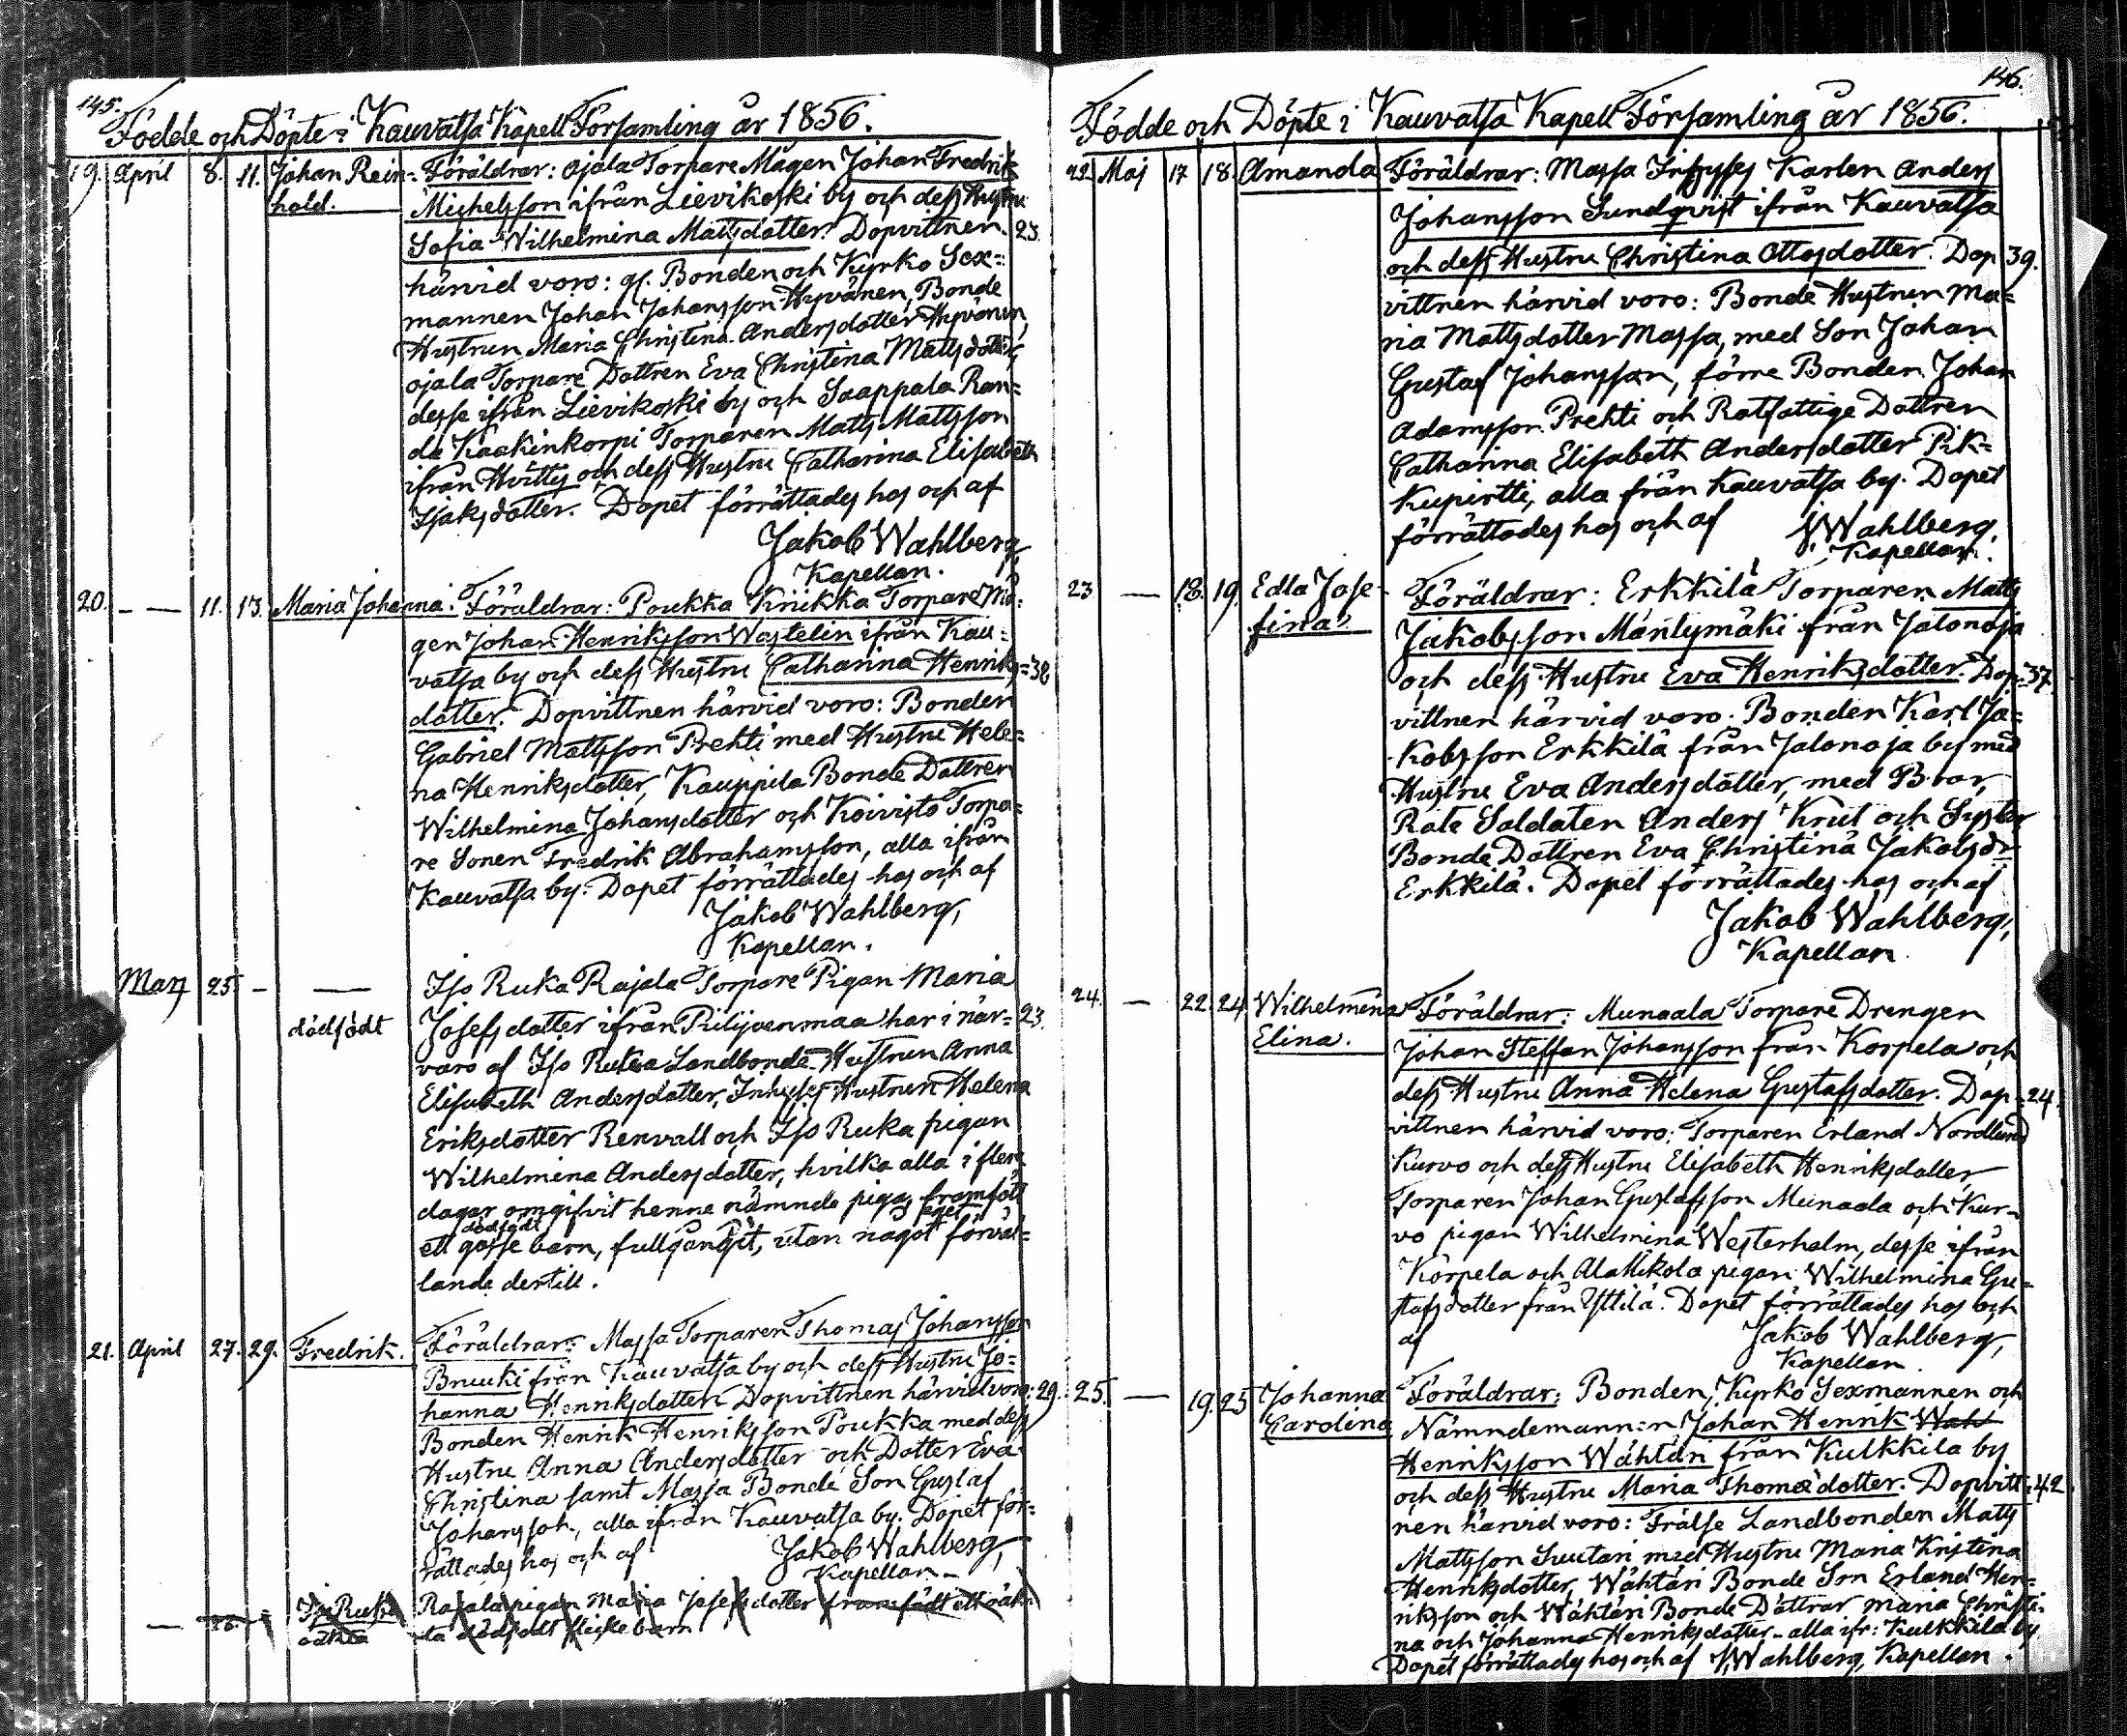 145.
Födde och Döpte i Kauvatsa Kapell Församling år 1856.
19. April 8. 11. Johan Rein=
hold.
Föräldrar: Ojala Torpare Mågen Johan Fredrik
Michelsson ifrån Lievikoski by och dess Hustru
Sofia Wilhelmina Mattsdotter. Dopvittnen 23.
härvid voro: gl. Bonden och Kyrko Sex=
mannen Johan Johansson Hyvönen, Bonde
Hustrun Maria Christina Andersdotter Hyvönen,
Ojala Torpare Dottren Eva Christina Mattsdotter,
desse ifrån Lievikoski by och Saappala Ran=
da Kaakinkorpi Torparen Matts Mattsson
ifrån Hvittis och dess Hustru Catharina Elisabeth
Isaksdotter. Dopet förrättades hos och af
Jakob Wahlberg,
Kapellan.
20. — — 11. 13. Maria Johanna. Föräldrar: Poukka Kriikka Torpare Må=
gen Johan Henriksson Wastelin ifrån Kau=
vatsa by och dess Hustru Catharina Henriks= 38
dotter. Dopvittnen härvid voro: Bonden
Gabriel Mattsson Prehti med Hustru Hele=
na Henriksdotter, Kauppila Bonde Dottren
Wilhelmina Johansdotter och Koivisto Torpa=
re Sonen Fredrik Abrahamsson, alla ifrån
Kauvatsa by. Dopet förrättades hos och af
Jakob Wahlberg,
Kapellan.
Mars 25. — —
dödfödt
Iso Ruka Rajala Torpare Pigan Maria
Josefsdotter ifrån Piilijoenmaa har i när= 23.
varo af Iso Ruka Landbonde Hustrun Anna
Elisabeth Andersdotter, Inhyses Hustrun Helena
Eriksdotter Renvall och Iso Ruka pigan
Wilhelmina Andersdotter, hvilka alla i flera
dagar omgifvit henne nämnde piga, framfödt
ett dödfödt gosse barn, fullgånget, utan något förvål=
lande dertill.
21. April 27. 29. Fredrik.
Föräldrar: Massa Torparen Thomas Johansson
Bruuki från Kauvatsa by och dess Hustru Jo=
hanna Henriksdotter. Dopvittnen härvid voro: 29.
Bonden Henrik Henriksson Poukka med dess
Hustru Anna Andersdotter och Dotter Eva
Christina samt Massa Bonde Son Gustaf
Johansson, alla ifrån Kauvatsa by. Dopet för=
rättades hos och af Jakob Wahlberg,
Kapellan.
— Iso Ruka Rajala pigan Maria Josefsdotter framfödt ett oäk=
oäkta ta dödfödt flicke barn
146.
Födde och Döpte i Kauvatsa Kapell Församling år 1856.
22. Maj 17 18. Amanda
Föräldrar: Massa Inhyses Karlen Anders
Johansson Sundqvist ifrån Kauvatsa
och dess Hustru Christina Ottosdotter. Dop 39.
vittnen härvid voro: Bonde Hustrun Ma=
ria Mattsdotter Massa, med Son Johan
Gustaf Johansson, förre Bonden Johan
Adamsson Prehti och Rotfattige Dottren
Catharina Elisabeth Andersdotter Pik=
kupirtti, alla från Kauvatsa by. Dopet
förrättades hos och af J Wahlberg,
Kapellan.
23. — 18. 19. Edla Jose=
fina.
Föräldrar: Erkkilä Torparen Matts
Jakobsson Mäntymäki från Jalonoja
och dess Hustru Eva Henriksdotter. Dop= 37
vittnen härvid voro. Bonden Karl Ja=
kobsson Erkkilä från Jalonoja by med
Hustru Eva Andersdotter, med Bror,
Rote Soldaten Anders Krut och Syster
Bonde Dottren Eva Christina Jakobsdr
Erkkilä. Dopet förrättades hos och af
Jakob Wahlberg,
Kapellan.
24. — 22. 24. Wilhelmina
Elina.
Föräldrar: Munaala Torpare Drengen
Johan Steffan Johansson från Korpela och
dess Hustru Anna Helena Gustafsdotter. Dop= 24.
vittnen härvid voro: Torparen Erland Nordlund
Kurvo och dess Hustru Elisabeth Henriksdotter
Torparen Johan Gustafsson Munaala och Kur=
vo pigan Wilhelmina Westerholm, desse ifrån
Korpela och AlaMikola pigan Wilhelmina Gu=
stafsdotter från Yttilä. Dopet förrättades hos och
af Jakob Wahlberg,
Kapellan.
25. — 19. 25 Johanna
Carolina
Föräldrar: Bonden, Kyrko Sexmannen och
Nämndemannen Johan Henrik Wah
Henriksson Wähtäri från Kulkkila by
och dess Hustru Maria Thomædotter. Dopvitt= 42
nen härvid voro: Frälse Landbonden Matts
Mattsson Suutari med Hustru Maria Kristina
Henriksdotter, Wähtäri Bonde Son Erland Hen=
riksson och Wähtäri Bonde Döttrar Maria Christi=
na och Johanna Henriksdotter - alla ifr: Kulkkila by
Dopet förrättades hos och af J Wahlberg, Kapellan.